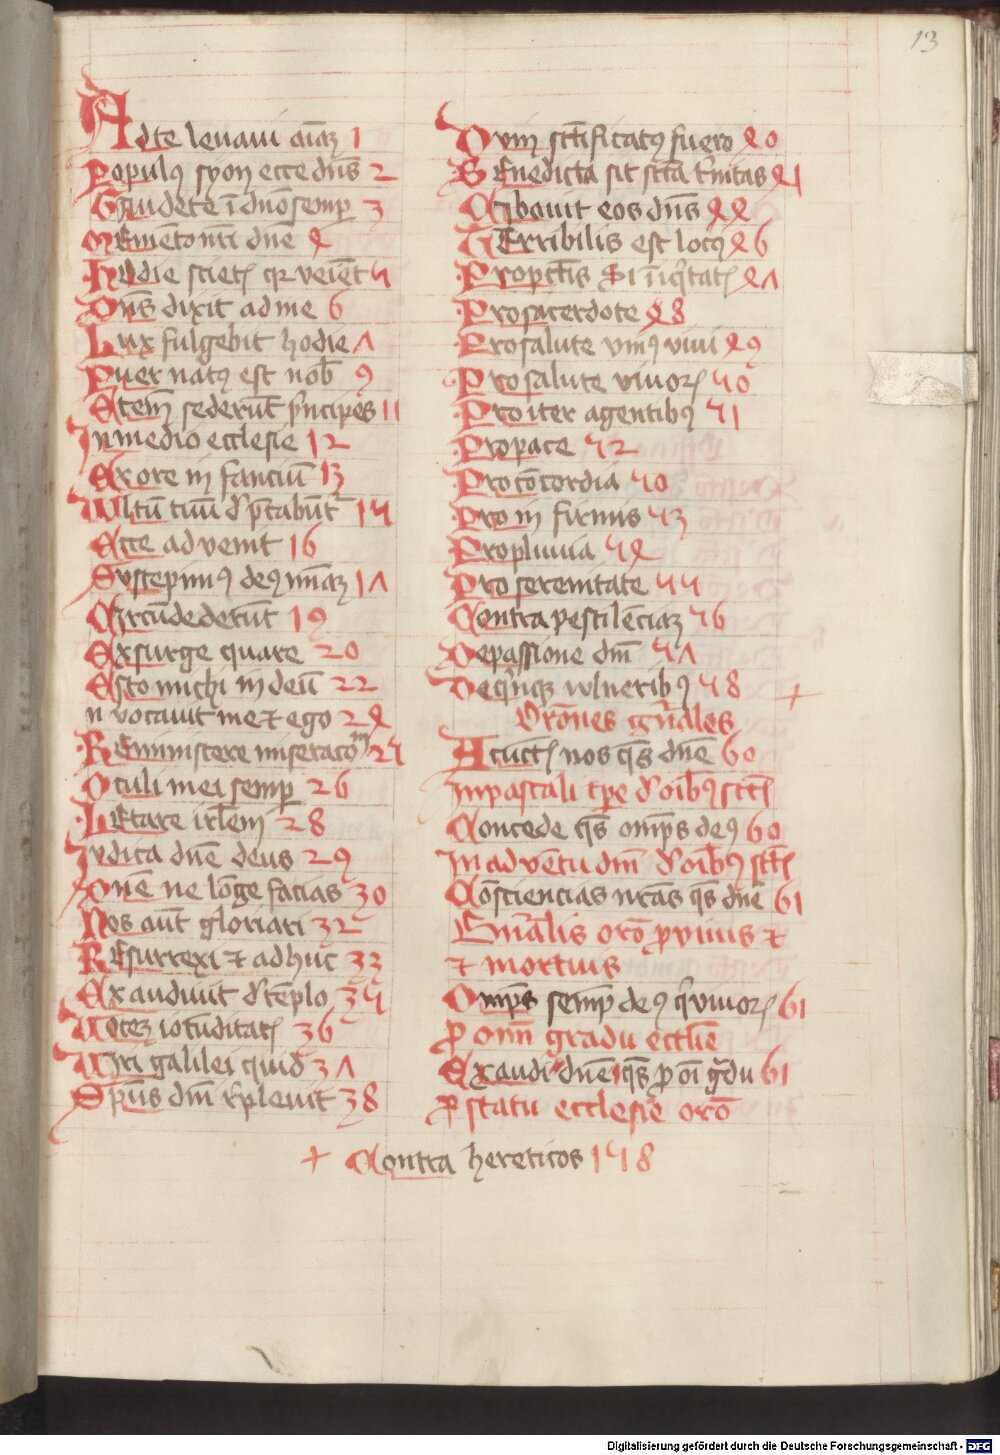 13
Ad te leuaui aīaʒ 1
Populꝰ syon ecce dn̄s 2
Gaudete ī dn̄o semꝑ 3
Memēto nr̄i dn̄e 4
Hodie scietꝭ qꝛ veiēt 5
Dn̄s dixit ad me 6
Lux fulgebit hodie 7
Puer natꝰ est nob̄ 9
Etem̄ sederūt p̄ncipes 11
In medio ecclesie 12
Ex ore infanciū 13
Wltū tuū d̓p̄cabūt᷑ 15
Ecce aduenit 16
Suscepimꝰ deꝰ mīaʒ 17
Circūdederūt 19
Exsurge quare 20
Esto michi in deū 22
nvocauit me ⁊ ego 24
Reminiscere miseracoᷠ 25
Oculi mei semꝑ 26
Letare irl̄em 28
Iudica dn̄e deus 29
Dn̄e ne lōge facias 30
Nos aūt gloriari 32
Resurrexi ⁊ adhuc 33
Exaudiuit d̓ tēplo 35
Voceʒ iocūditatꝭ 36
Viri galilei quid 37
Sp̄us dn̄i r̄pleuit 38
Dum scīficatꝰ fuero 40
Benedicta sit sct̄a t̄nitas 41
Cibauit eos dn̄s 44
Terribilis est locꝰ 46
Pro pctīs Si īiq̄tatꝭ 47
Pro sacerdote 48
Pro salute vniꝰ viui 49
Pro salute viuoꝝ 50
Pro iter agentibꝰ 51
Pro pace 52
Pro cōcordia 50
Pro infirmis 53
Pro pluuia 54
Pro serenitate 55
Contra pestilēciaʒ 56
De passione dn̄i 57
De q̄nqʒ wlneribꝰ 58 +
Orōnes gn̄ales
A cūctꝭ nos qs̄ dn̄e 60
In pascali tp̄e d̓ oīb̄ꝰ sctꝭ
Concede qs̄ omp̄s deꝰ 60
In aduētu dn̄i d̓ oīb̄ꝰ sctꝭ
Cōsciencias nr̄as qs̄ dn̄e 61
Gn̄alis orō ꝓ viuis ⁊
⁊ mortuis
Omp̄s semꝑ deꝰ q̄ viuoꝝ 61
ꝓ omī gradu eccl̄ie
Exaudi dn̄e qs̄ ꝓ oī gᷓdu 61
ꝓ statu ecclesie orō
+ Contra hereticos 158
Digitalisierung gefördert durch die Deutsche Forschungsgemeinschaft - DFG